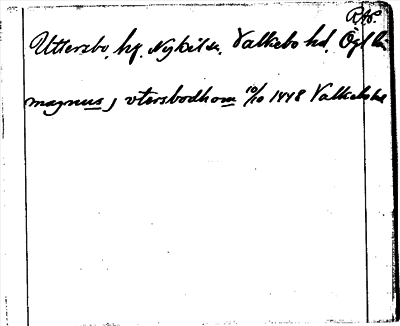 Uttersbo, hg. Nykil sn. Valkebo hd. Ögl
magnus j vtersbodhom 10/10 1448 Valkebo hd